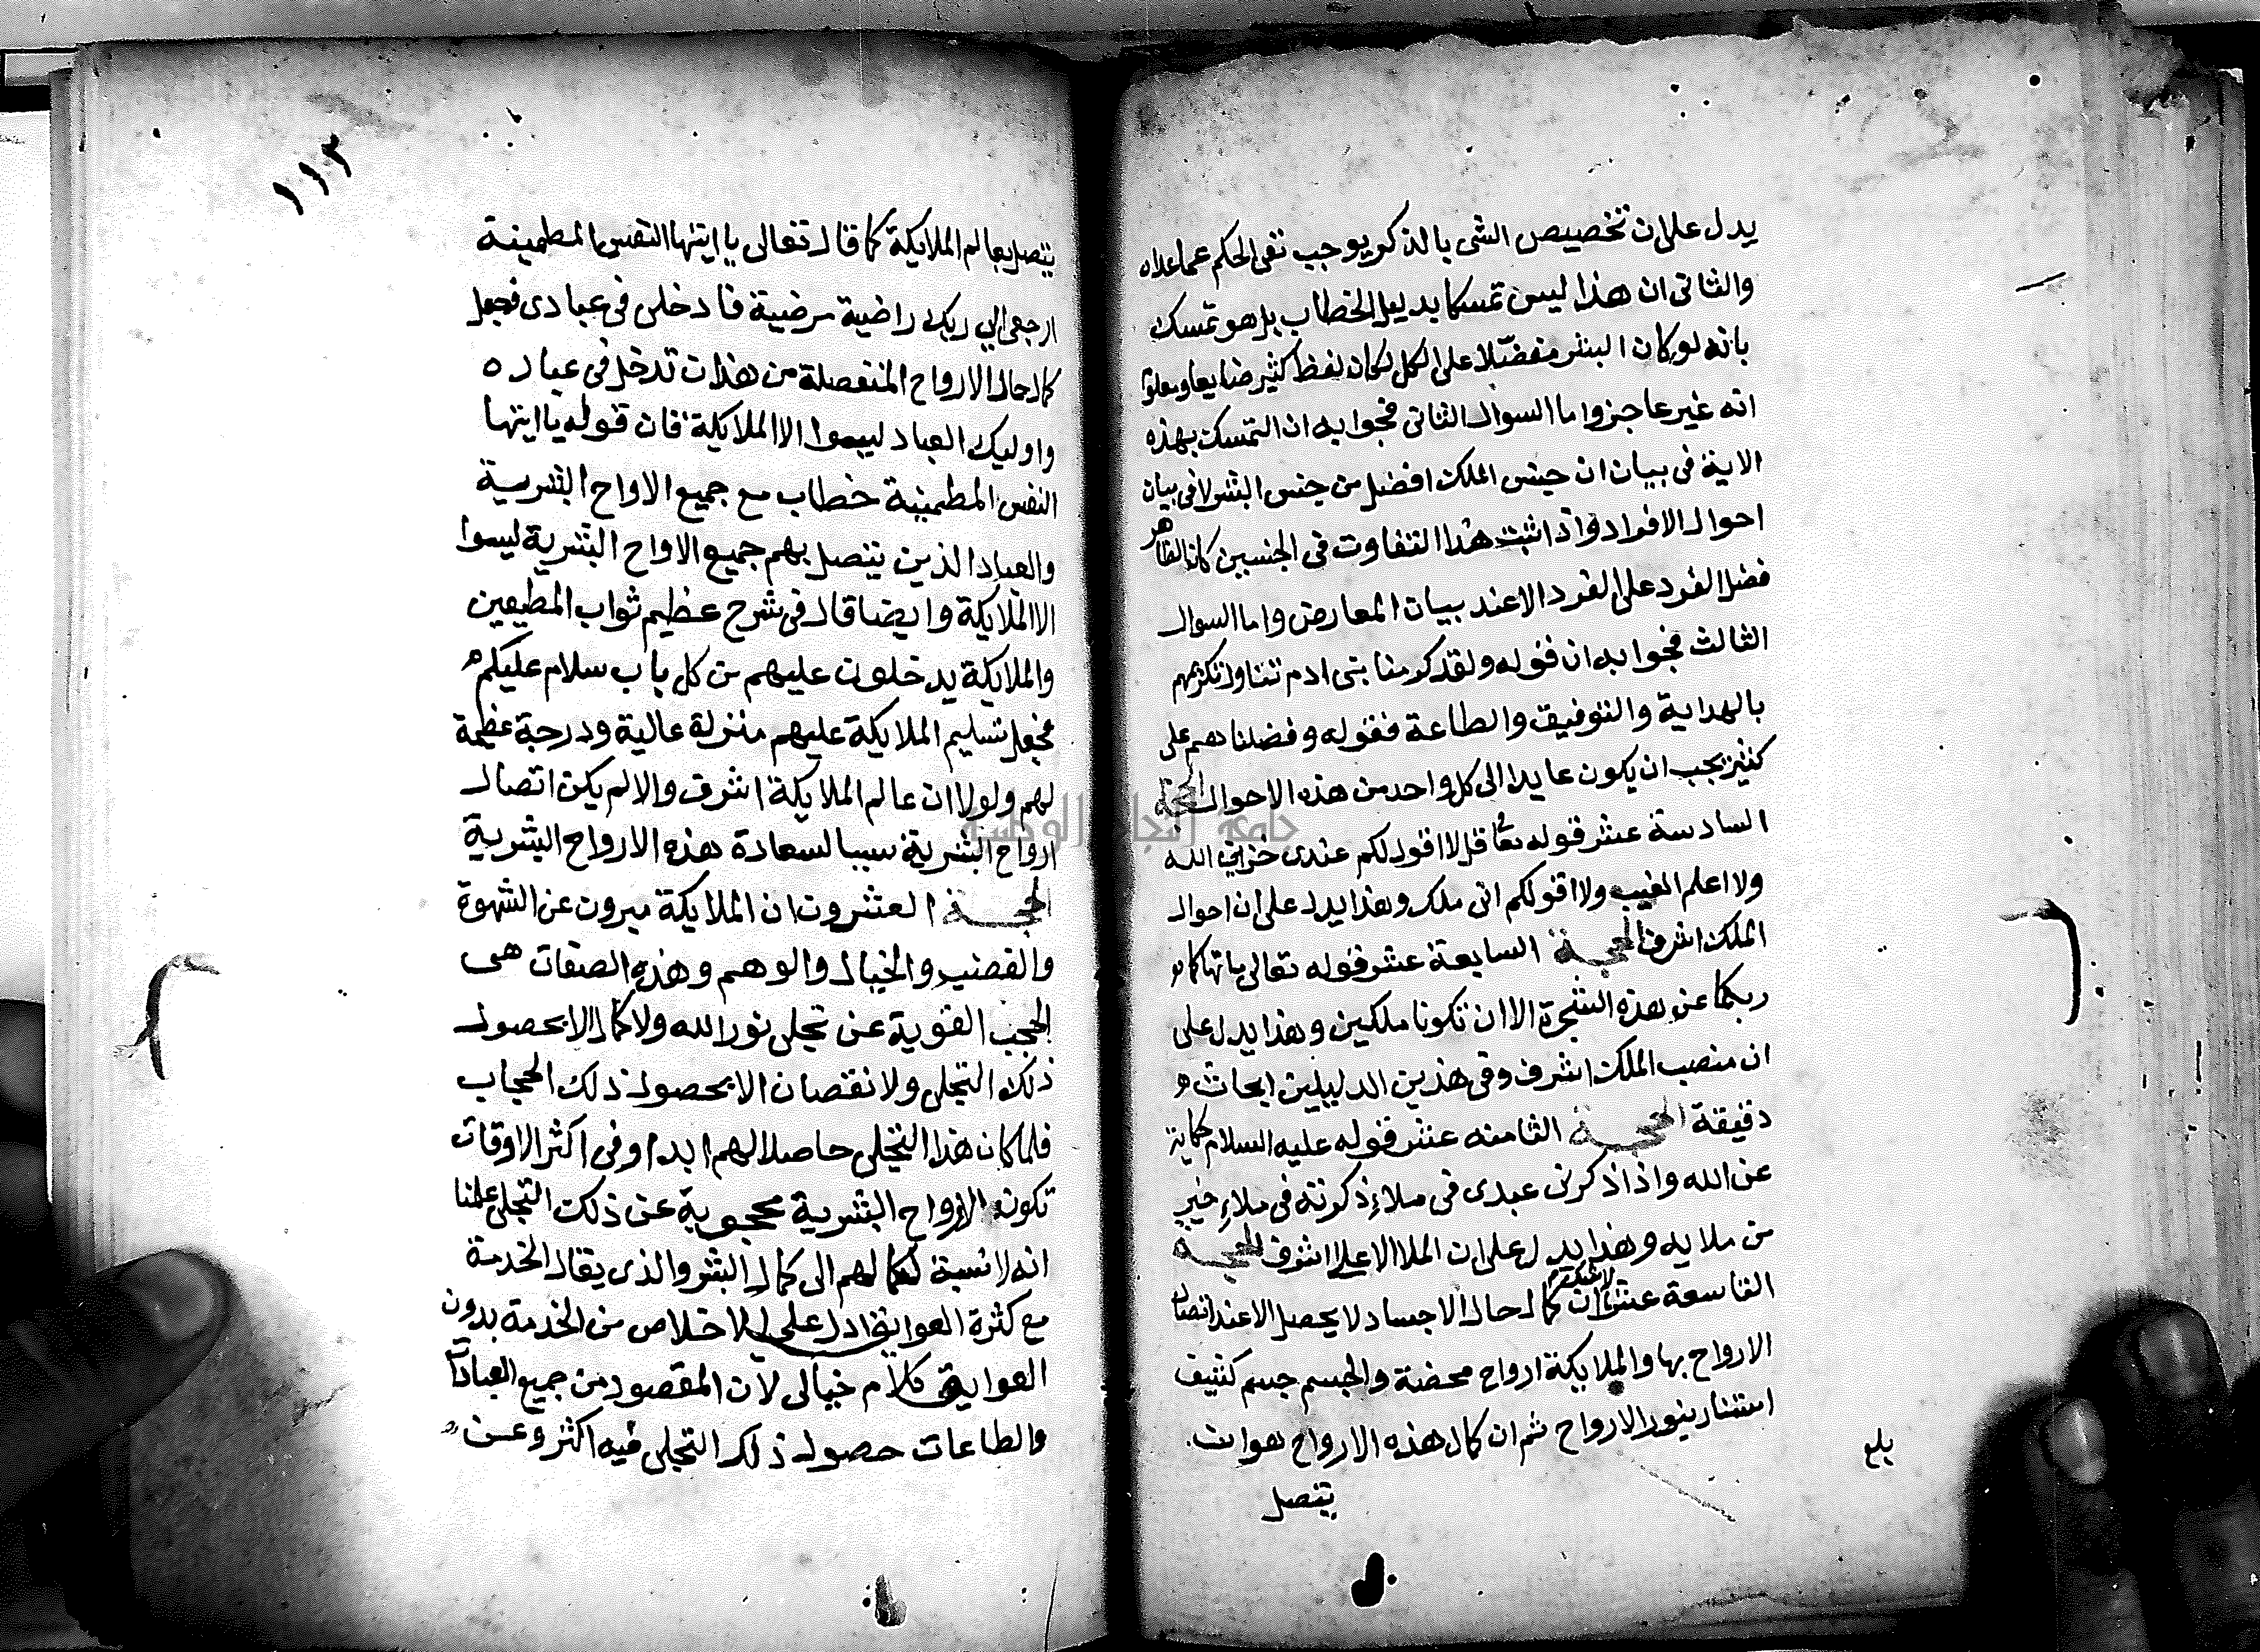 يدل على ان تخصيص الشى بالذكر يوجب نفى الحكم عما عداه
والثانى ان هذا ليس تمسكا بدليل الخطاب بل هو تمسك
بانه لو كان البشر مفضلا على الكل لكان لفظ كثير ضايعا ومعلوم
انه غير عاجز واما السوال الثانى فجوابه ان التمسك بهذه
الاية فى بيان ان جنس الملك افضل من جنس البشر لا فى بيان
احوال الافراد واذا ثبت هذا التفاوت فى الجنسين كان الظاهر
فضل الفرد على الفرد الا عند بيان المعارض واما السوال
الثالث فجوابه ان قوله ولقد كرمنا بنى ادم تتناول تكريمهم
بالهداية والتوفيق والطاعة فقوله وفضلناهم على
كثير يجب ان يكون عايدا الى كل واحد من هذه الاحوال الحجة
السادسة عشر قوله تعا قل لا اقول لكم عندى خزاين الله
ولا اعلم الغيب ولا اقول لكم انى ملك وهذا يدل على ان احوال
الملك اشرف الحجة السابعة عشر قوله تعالى ما نهاكما
ربكما عن هذه الشجرة الا ان تكونا ملكين وهذا يدل على
ان منصب الملك اشرف وفى هذين الدليلين ابحاث
دقيقة الحجة الثامنه عشر قوله عليه السلام حكاية
عن الله واذا ذكرنى عبدى فى ملاء ذكرته فى ملاء خير
من ملايه وهذا يدل على ان الملا الاعلا اشرف الحجة
التاسعة عشر ان كمال حال الاجساد لا يحصل الا عند اتصال
الارواح بها والملايكة ارواح محضة والجسم جسم كثيف
استنار بنور الارواح ثم ان كمال هذه الارواح هو ان
بلغ
تتصل
١١٣
يتصل بعالم الملايكة كما قال تعالى يا ايتها النفس المطمينة
ارجعى الى ربك راضية مرضية فادخلى فى عبادى فجعل
كمال حال الارواح المنفصلة من هذا ان تدخل فى عباده
واوليك العباد ليسوا الا الملايكة فان قوله يا ايتها
النفس المطمينة خطاب مع جميع الاواح البشرية
والعباد الذين يتصل بهم جميع الاواح البشرية ليسوا
الا الملايكة وايضا قال فى شرح عظيم ثواب المطيعين
والملايكة يدخلون عليهم من كل باب سلام عليكم
فجعل تسليم الملايكة عليهم منزلة عالية ودرجة عظيمة
لهم ولولا ان عالم الملايكة اشرف والا لم يكن اتصال
ارواح البشرية سببا لسعادة هذه الارواح البشرية
الحجة العشرون ان الملايكة مبرون عن الشهوة
والغضب والخيال والوهم وهذه الصفات هى
الحجب القوية عن تجلى نور الله ولا كمال الا بحصول
ذلك التجلى ولا نقصان الا بحصول ذلك الحجاب
فلما كان هذا التجلى حاصلا لهم ابدا وفى اكثر الاوقات
تكون الارواح البشرية محجوبة عن ذلك التجلى علمنا
انه لا نسبة لكمالهم الى كمال البشر والذى يقال الخدمة
مع كثرة العوايق ادل على الاخلاص من الخدمة بدون
العوايق كلام خيالى لان المقصود من جميع العبادات
والطاعات حصول ذلك التجلى فيه اكثر وعن